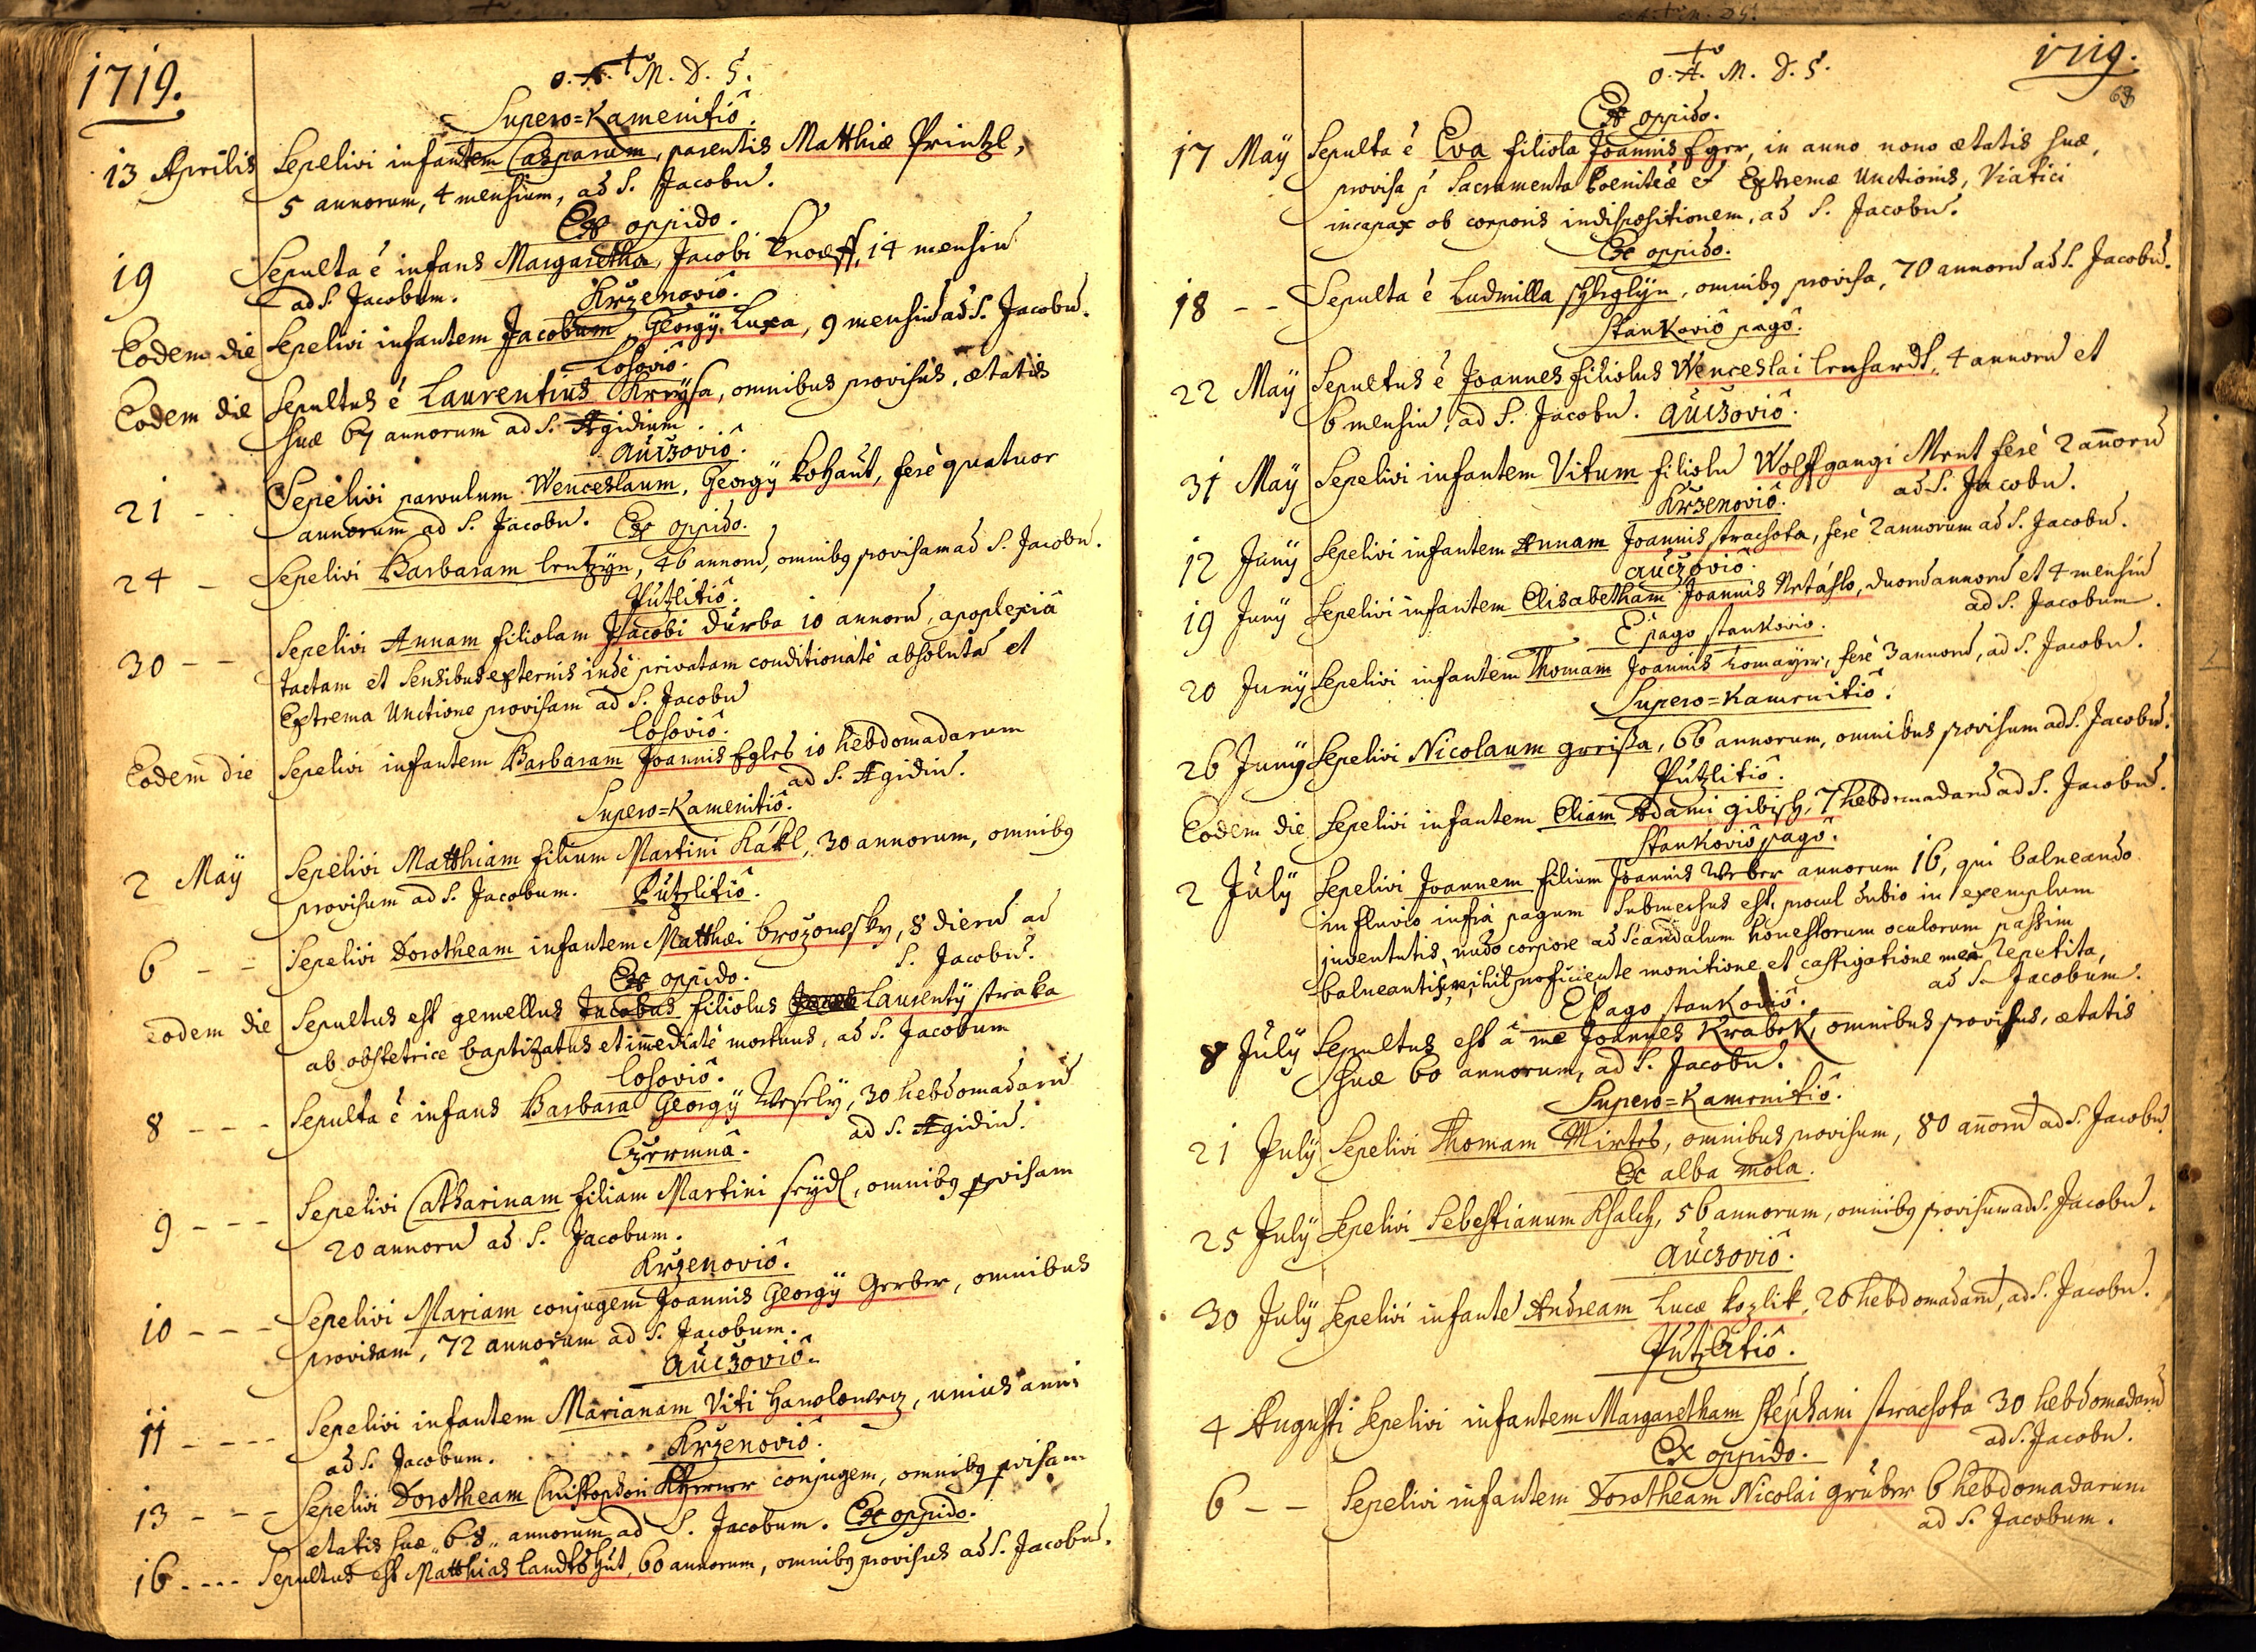 1719.
O. A. M. D. G.
Supero=Kamenitiô.
13 Aprilis Sepelivi infantem Casparum, parentis Matthiæ Printzl,
5 annorum, 4 mensium, ad S. Jacobū.
Ex oppido.
19 Sepulta ē infans Margaretha, Jacobi Knoeff, 14 mensiū
ad S. Jacobum.
Krzenoviô.
Eodem die Sepelivi infantem Jacobum, Georgÿ Luxa, 9 mensiū ad S. Jacobū.
Losoviô.
Eodem die Sepultus ē Laurentius Kreysa, omnibus provisus, ætatis
suæ 67 annorum ad S. Ægidium.
Auczoviô.
21 - - Sepelivi parvulum Wenceslaum, Georgÿ Kohaut, ferè quatuor
annorum ad S. Jacobū.
Ex oppido.
24 - Sepelivi Barbaram Lentzyn, 46 annorū, omnibq provisam ad S. Jacobū.
Putzlitiô.
30 - - Sepelivi Annam filiolam Jacobi Durba 10 annorū, apoplexiâ
tactam et sensibus externis indè privatam conditionatè absolutā et
Extrema Unctione provisam ad S. Jacobū
Losoviô.
Eodem die Sepelivi infantem Barbaram Joannis Egles 10 hebdomadarum
ad S. Ægidiū.
Supero=Kamenitiô.
2 Maÿ Sepelivi Matthiam filium Martini Kákl, 30 annorum, omnibq
provisum ad S. Jacobum.
Putzlitiô.
6 - - Sepelivi Dorotheam infantem Matthæi Brozowsky, 8 dierū ad
S. Jacobū.
Ex oppido.
Eodem die Sepultus est gemellus Jacobus filiolus Laurentÿ Straka
ab obstetrice baptizatus et im̄ediatè mortuus, ad S. Jacobum
Losoviô.
8 - - - Sepulta ē infans Barbara Georgÿ Wesely, 30 hebdomadarū
ad S. Ægidiū.
Czermnâ.
9 - - - Sepelivi Catharinam filiam Martini Seÿdl, omnibq pvisam
20 annorū ad S. Jacobum.
Krzenoviô.
10 - - - Sepelivi Mariam conjugem Joannis Georgÿ Gerber, omnibus
provisam, 72 annorum ad S. Jacobum.
Auczoviô.
11 - - - - Sepelivi infantem Marianam Viti Hawlowecz, unius anni
ad S. Jacobum.
Krzenoviô.
13 - - - Sepelivi Dorotheam Christophori conjugem, omnibq pvisam
ætatis suæ 68 annorum ad S. Jacobum.
Ex oppido.
16 - - - - Sepultus est Matthias Landtshut, 60 annorum, omnibq provisus ad S. Jacobū.
1719.
63
O. A. M. D. G.
Ex oppido.
17 Maÿ Sepulta ē Eva filiola Joannis Eger, in anno nono ætatis suæ,
provisa p Sacramenta Poeniteæ et Extremæ Unctionis, Viatici
incapax ob corporis indispositionem, ad S. Jacobū.
Ex oppido.
18 - - Sepulta ē Ludmilla, omnibq provisa, 70 annorū ad S. Jacobū.
Stankoviô pagô.
22 Maÿ Sepultus ē Joannes filiolus Wenceslai Lenhardt, 4 annorū et
6 mensiū, ad S. Jacobū.
Auczoviô.
31 Maÿ Sepelivi infantem Vitum filiolū Wolffgangi Ment ferè 2 an̄orū
ad S. Jacobū.
Krzenoviô.
12 Junÿ Sepelivi infantem Annam Joannis Strachota, ferè 2 annorum ad S. Jacobū.
Auczoviô.
19 Junÿ Sepelivi infantem Elisabetham Joannis Netáhlo, duorū annorū et 4 mensiū
ad S. Jacobum.
E pago Stankovio.
20 Junÿ Sepelivi infantem Thomam Joannis Lomaÿer, ferè 3 annorū, ad S. Jacobū.
Supero=Kamenitiô.
26 Junÿ Sepelivi Nicolaum Greißa, 66 annorum, omnibus provisum ad S. Jacobū.
Putzlitiô.
Eodem die Sepelivi infantem Eliam Adami Gibisch, 7 hebdomadarū ad S. Jacobū.
Stankoviô pagô.
2 Julÿ Sepelivi Joannem filium Joannis Weber annorum 16, qui balneando
in fluvio infrà pagum submersus est, procul dubio in exemplum
juventutis, nudo corpore ad scandalum honestorum oculorum passim
balneantis, nihil proficiente monitione et castigatione meâ repetita,
ad S. Jacobum.
E Pago Stankoviô.
8 Julÿ Sepultus est â me Joannes Krabek, omnibus provisus, ætatis
suæ 60 annorum, ad S. Jacobū.
Supero=Kamenitiô.
21 Julÿ Sepelivi Thomam Mirtes, omnibus provisum, 80 an̄orū ad S. Jacobū.
Ex alba mola.
25 Julÿ Sepelivi Sebestianum Khalch, 56 annorum, omnibq provisum ad S. Jacobū.
Auczoviô.
30 Julÿ Sepelivi infantē Andream Lucæ Kozlik, 26 hebdomadarū, ad S. Jacobū.
Putzlitiô.
4 Augusti Sepelivi infantem Margaretham Stephani Strachota 30 hebdomadarū
ad S. Jacobū.
Ex oppido.
6 - - Sepelivi infantem Dorotheam Nicolai Gruber 6 hebdomadarum
ad S. Jacobum.